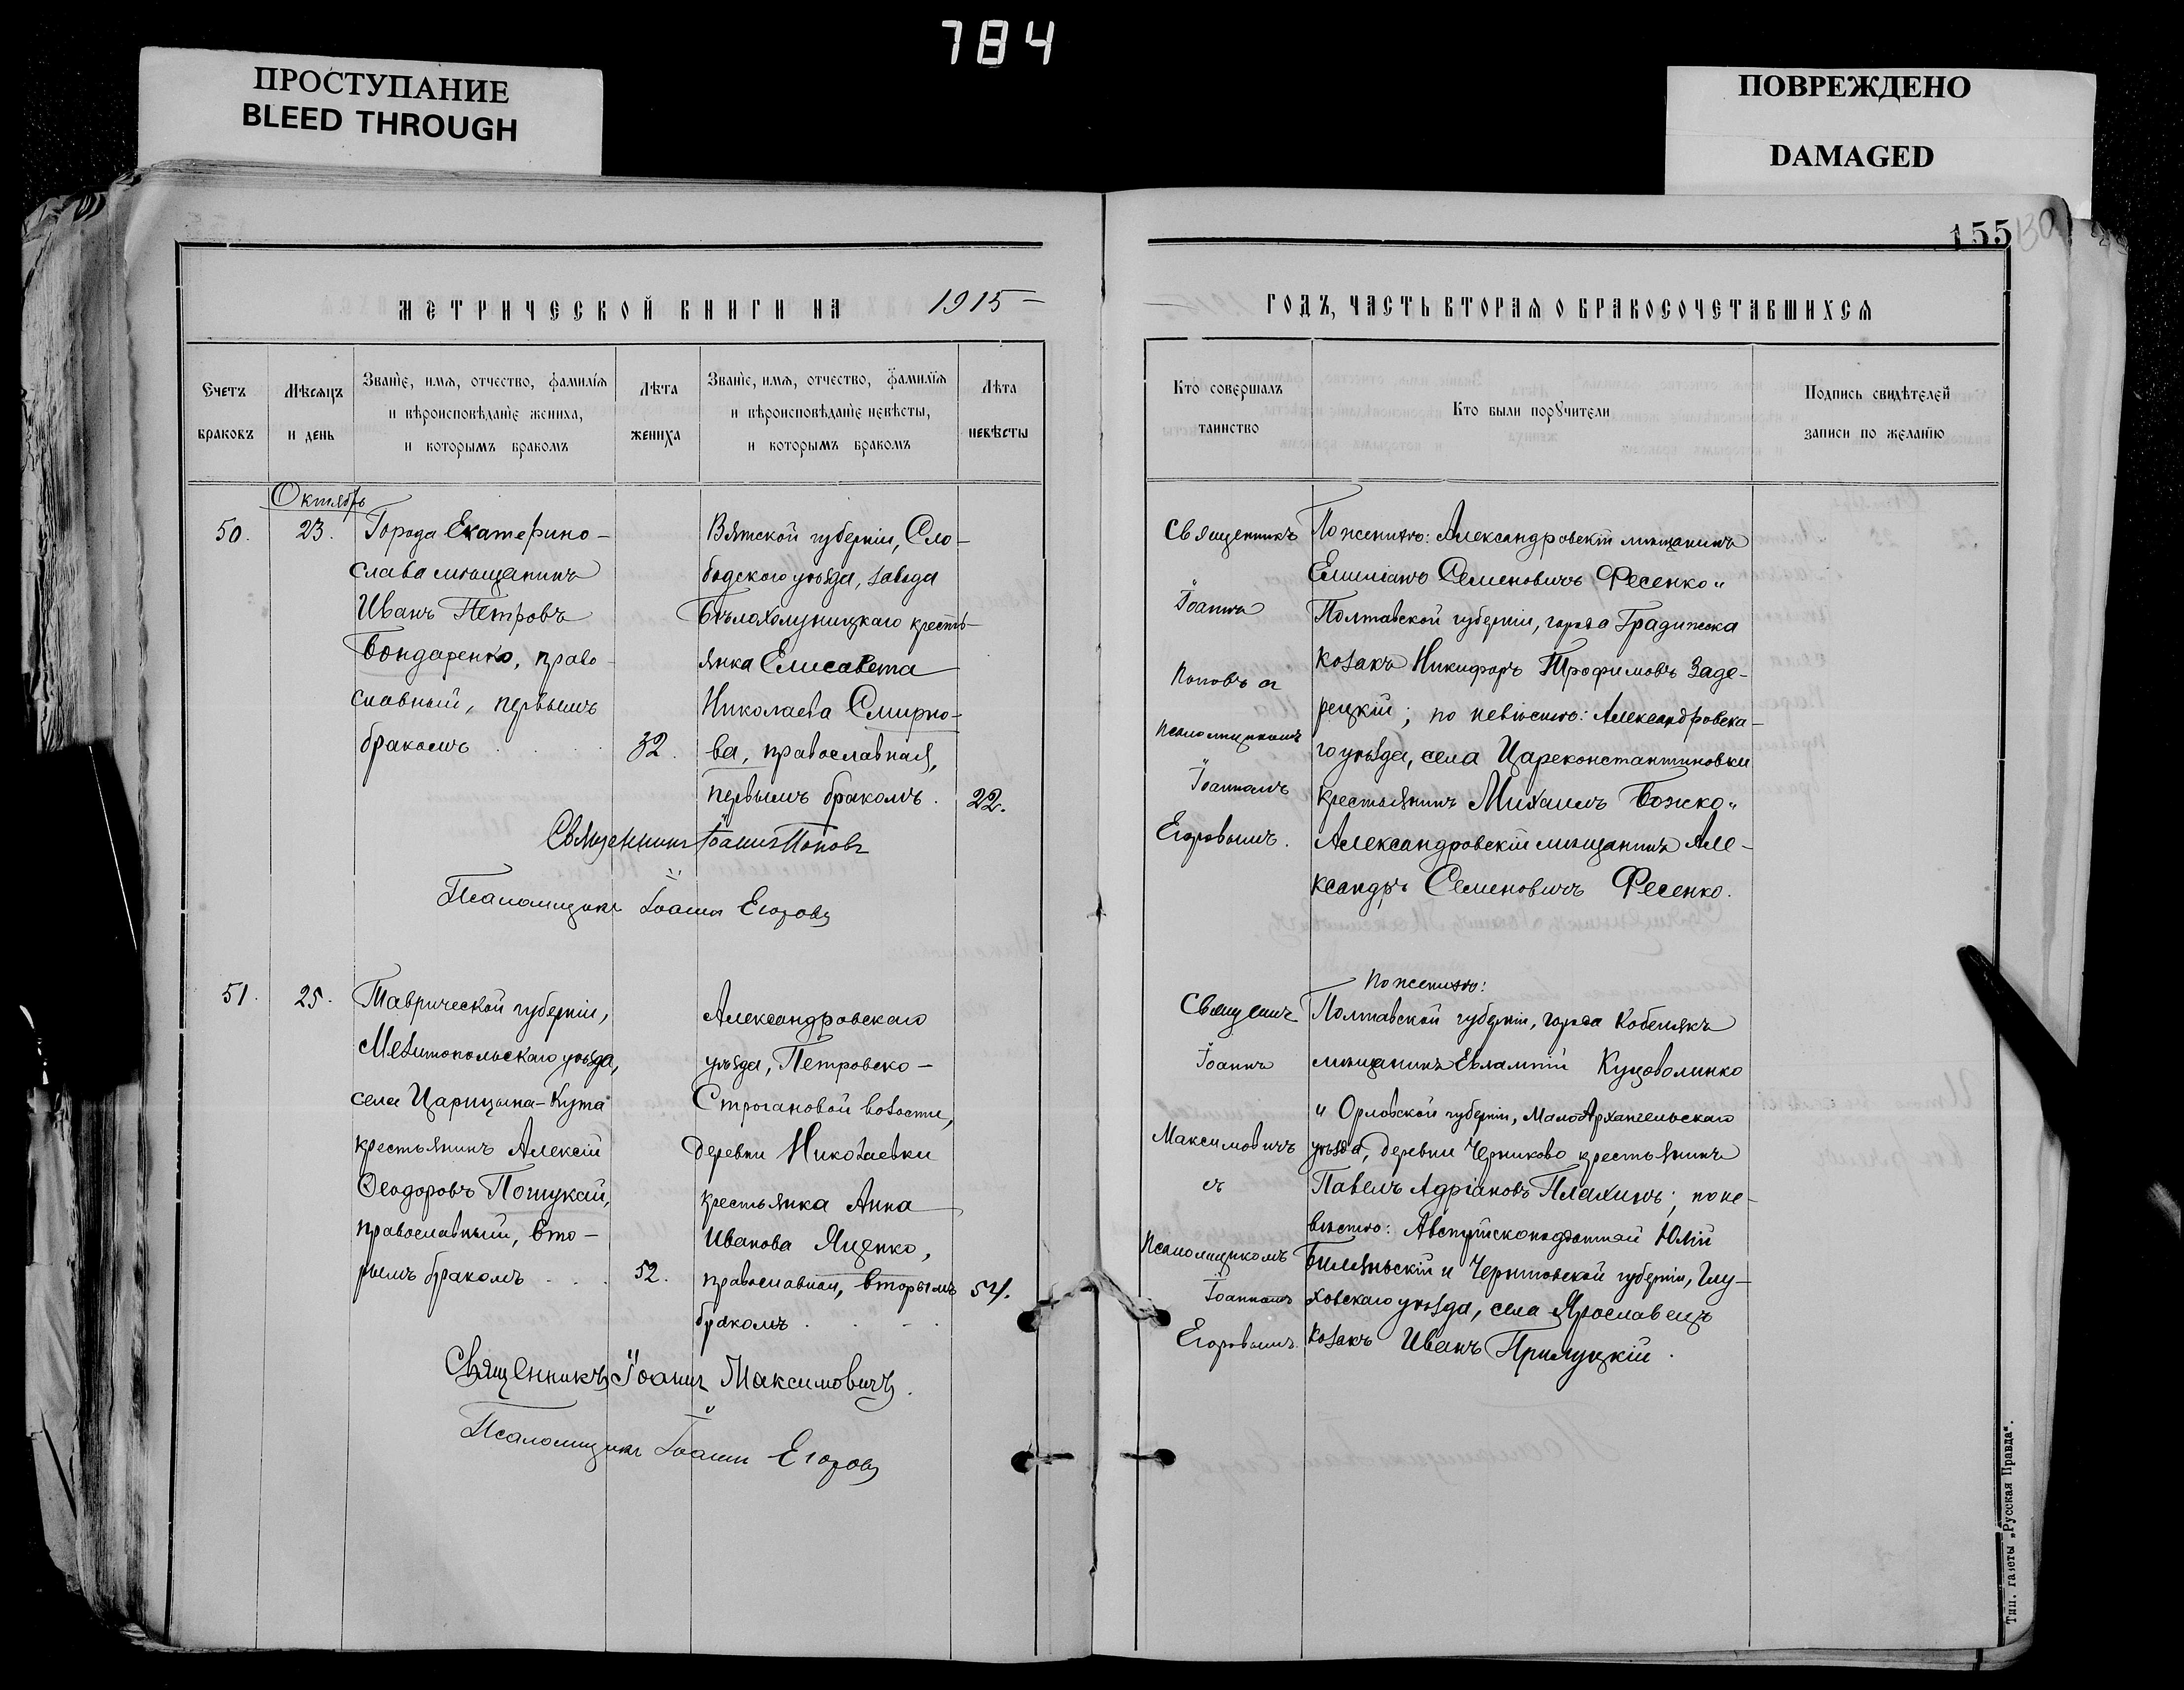 784
ПРОСТУПАНИЕ
BLEED THROUGH
ПОВРЕЖДЕНО
DAMAGED
155
130
МЕТРИЧЕСКОЙ КНИГИ НА 1915
ГОДЪ, ЧАСТЬ ВТОРАЯ О БРАКОСОЧЕТАВШИХСЯ
Счетъ
браковъ
Мѣсяцъ
и день
Званїе, имя, отчество, фамилїя
и вѣроисповѣданїе жениха,
и которымъ бракомъ
Лѣта
жениха
Званїе, имя, отчество, фамилїя
и вѣроисповѣданїе невѣсты,
и которымъ бракомъ
Лѣта
невѣсты
Кто совершалъ
таинство
Кто были порꙋчители
Подпись свидѣтелей
записи по желанїю
Октябрь
50.
23.
Города Екатерино-
слава мѣщанинъ
Иванъ Петровъ
Бондаренко, право-
славный, первымъ
бракомъ
32.
Вятской губерніи, Сло-
бодского уѣзда, завода
Бѣлохолуницкаго кресть-
янка Елисавета
Николаева Смирно-
ва, православная,
первымъ бракомъ.
22.
Священникъ
Іоаннъ
Поповъ съ
псаломщикомъ
Іоанномъ
Егоровымъ.
По женихѣ: Александровскій мѣщанинъ
Емиліанъ Семеновичъ Фесенко и
Полтавской губерніи, города Градижска
козакъ Никифоръ Трофимовъ Заде-
рецкій; по невѣстѣ: Александровска-
го уѣзда, села Цареконстантиновки
крестьянинъ Михаилъ Божко и
Александровскій мѣщанинъ Але-
ксандръ Семеновичъ Фесенко.
Священникъ Іоаннъ Поповъ
Псаломщикъ Іоаннъ Егоровъ
51.
25.
Таврической губерніи,
Мелитопольскаго уѣзда,
села Царицына-Кута
крестьянинъ Алексій
Ѳеодоровъ Пошукай,
православный, вто-
рымъ бракомъ
52.
Александровскаго
уѣзда, Петровско-
Строгановой волости,
деревни Николаевки
крестьянка Анна
Иванова Яценко,
православная, вторымъ
бракомъ
54.
Священникъ
Іоаннъ
Максимовичъ
съ
Псаломщикомъ
Іоанномъ
Егоровымъ.
По женихѣ:
Полтавской губерніи, города Кобелякъ
мѣщанинъ Евлампій Куцоволинко
и Орловской губерніи, Малоархангельскаго
уѣзда, деревни Черниково крестьянинъ
Павелъ Адріановъ Плахинъ; по не-
вѣстѣ: Австрійскоподданный Юлій
Билянскій и Черниговской губерніи, Глу-
ховскаго уѣзда, села Ярославецъ
козакъ Иванъ Прилуцкій.
Священникъ Іоаннъ Максимовичъ.
Псаломщикъ Іоаннъ Егоровъ
Тип. газеты „Русская Правда“.